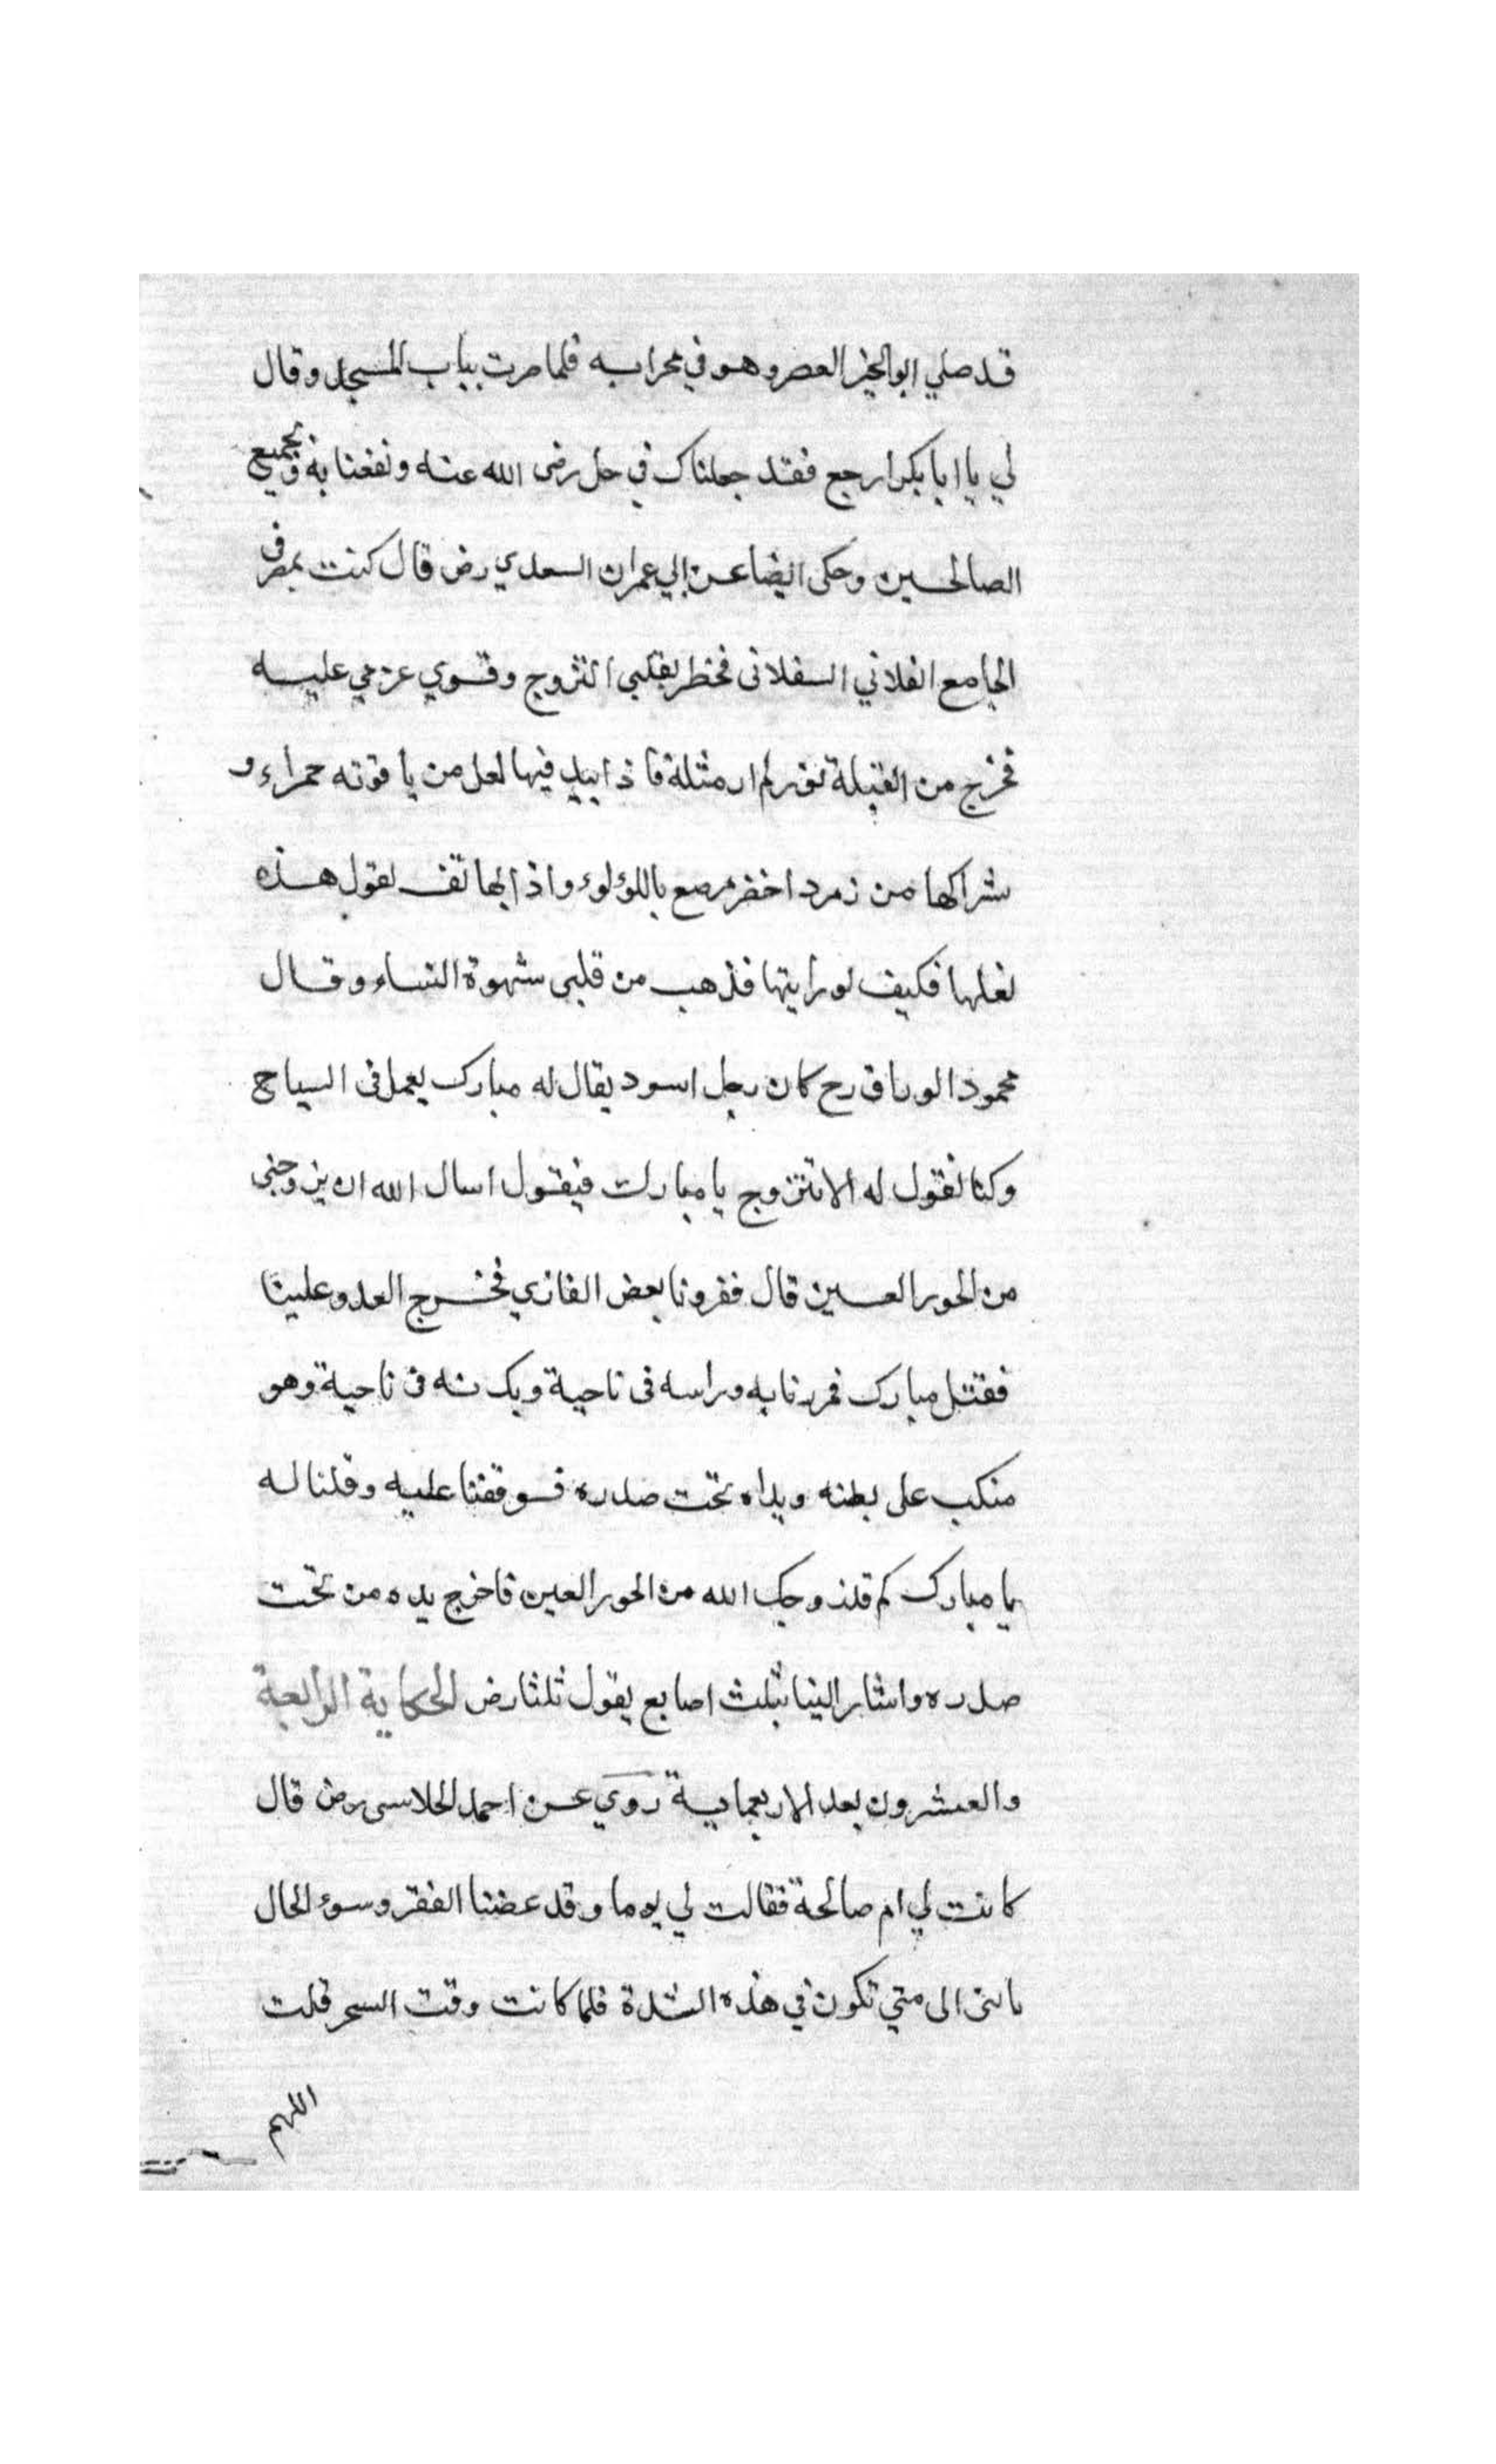 قد صلي ابو الخير العصر وهو في محرابه فلما صرت بباب المسجد وقال
لي يا ابا بكر ارجع فقد جعلناك في حل رضى الله عنه ونفعنا به وبجميع
الصالحين وحكى ايضا عن ابي عمران السعدي رض قال كنت بمصر فى
الجامع الفلاني السفلانى فخطر بقلبي التزوج وقوي عزمي عليه
فخرج من القبلة نور لم ار مثلة فاذا بيد فيها نعل من ياقوته حمراء و
شراكها من زمرد اخضر مرصع باللؤلوء واذا بهاتف يقول هذه
نعلها فكيف لو رايتها فذهب من قلبي شهوة النساء وقال
محمود الوراق رح كان رجل اسود يقال له مبارك يعمل فى السياج
وكنا نقول له الا تتزوج يا مبارك فيقول اسال الله ان يزوجنى
من الحور العين قال فغزونا بعض المغازي فخرج العدو علينا
فقتل مبارك فمررنا به وراسه فى ناحية وبدنه فى ناحية وهو
منكب على بطنه ويداه تحت صدره فوقفنا عليه وقلنا له
يا مبارك كم قد زوجك الله من الحور العين فاخرج يده من تحت
صدره واشار الينا بثلث اصابع يقول ثلثا رض الحكاية الرابعة
والعشرون بعد الاربعماية روي عن احمد الحلاسى رض قال
كانت لي ام صالحة فقالت لي يوما وقد عضنا الفقر وسوء الحال
يا بنى الى متي تكون في هذه الشدة فلما كانت وقت السحر قلت
اللهم